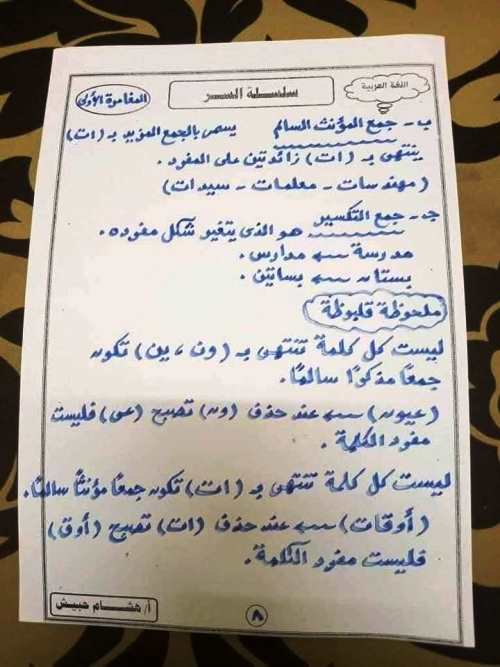 اللغة العربية
سلسلة السر
المغامرة الأولى
ب - جمع المؤنث السالم يسمى بالجمع المزيد بـ (ات)
ينتهى بـ (ات) زائدتين على المفرد .
(مهندسات - معلمات - سيدات)
جـ - جمع التكسير هو الذى يتغير شكل مفرده .
مدرسة ← مدارس .
بستان ← بساتين .
ملحوظة قلبوظة
ليست كل كلمة تنتهى بـ (ون ، ين) تكون
جمعًا مذكرًا سالمًا .
(عيون) ← عند حذف (ون) تصبح (عى) فليست
مفرد الكلمة .
ليست كل كلمة تنتهى بـ (ات) تكون جمعًا مؤنثًا سالمًا .
(أوقات) ← عند حذف (ات) تصبح (أوق)
فليست مفرد الكلمة .
٨
أ/ هشام حبيش